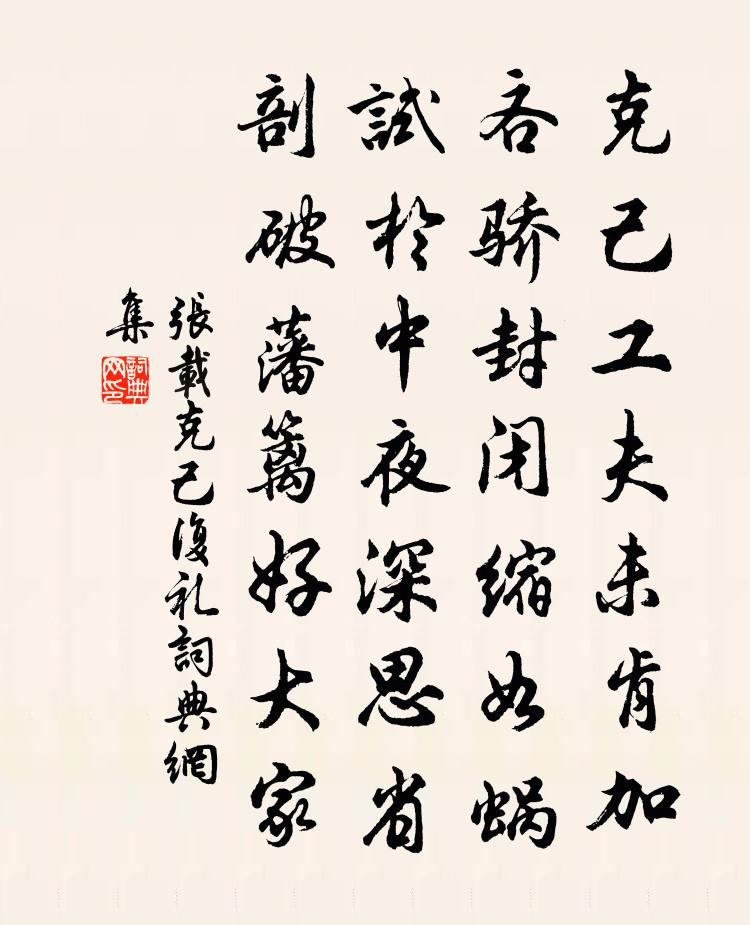 克己工夫未肯加
吝骄封闭缩如蜗
試於中夜深思省
剖破藩篱好大家
張載克己復礼詞典網
集
詞典網印